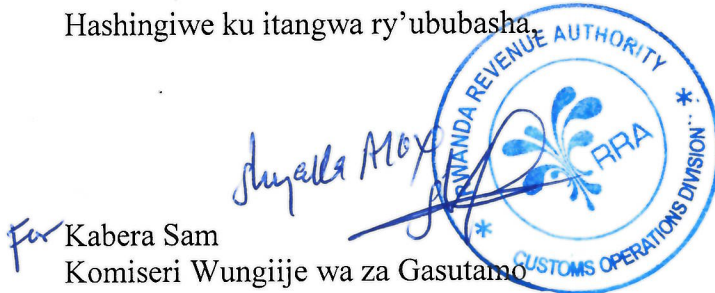 Hashingiwe ku itangwa ry'ububasha,
RWANDA REVENUE AUTHORITY
RRA
CUSTOMS OPERATIONS DIVISION
Alex
For Kabera Sam
Komiseri Wungiije wa za Gasutamo